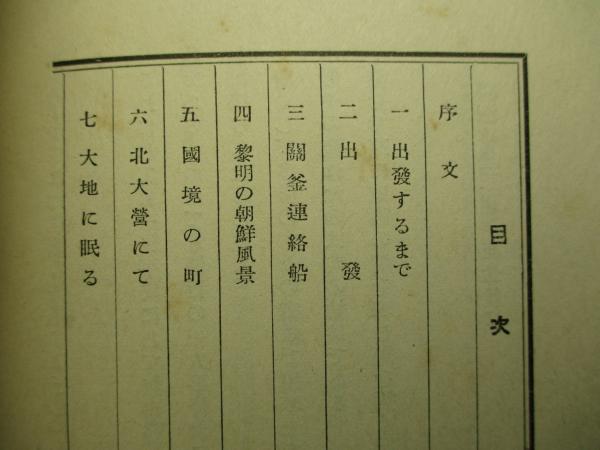 目次
序文
一 出發するまで
二 出發
三 關釜連絡船
四 黎明の朝鮮風景
五 國境の町
六 北大營にて
七 大地に眠る